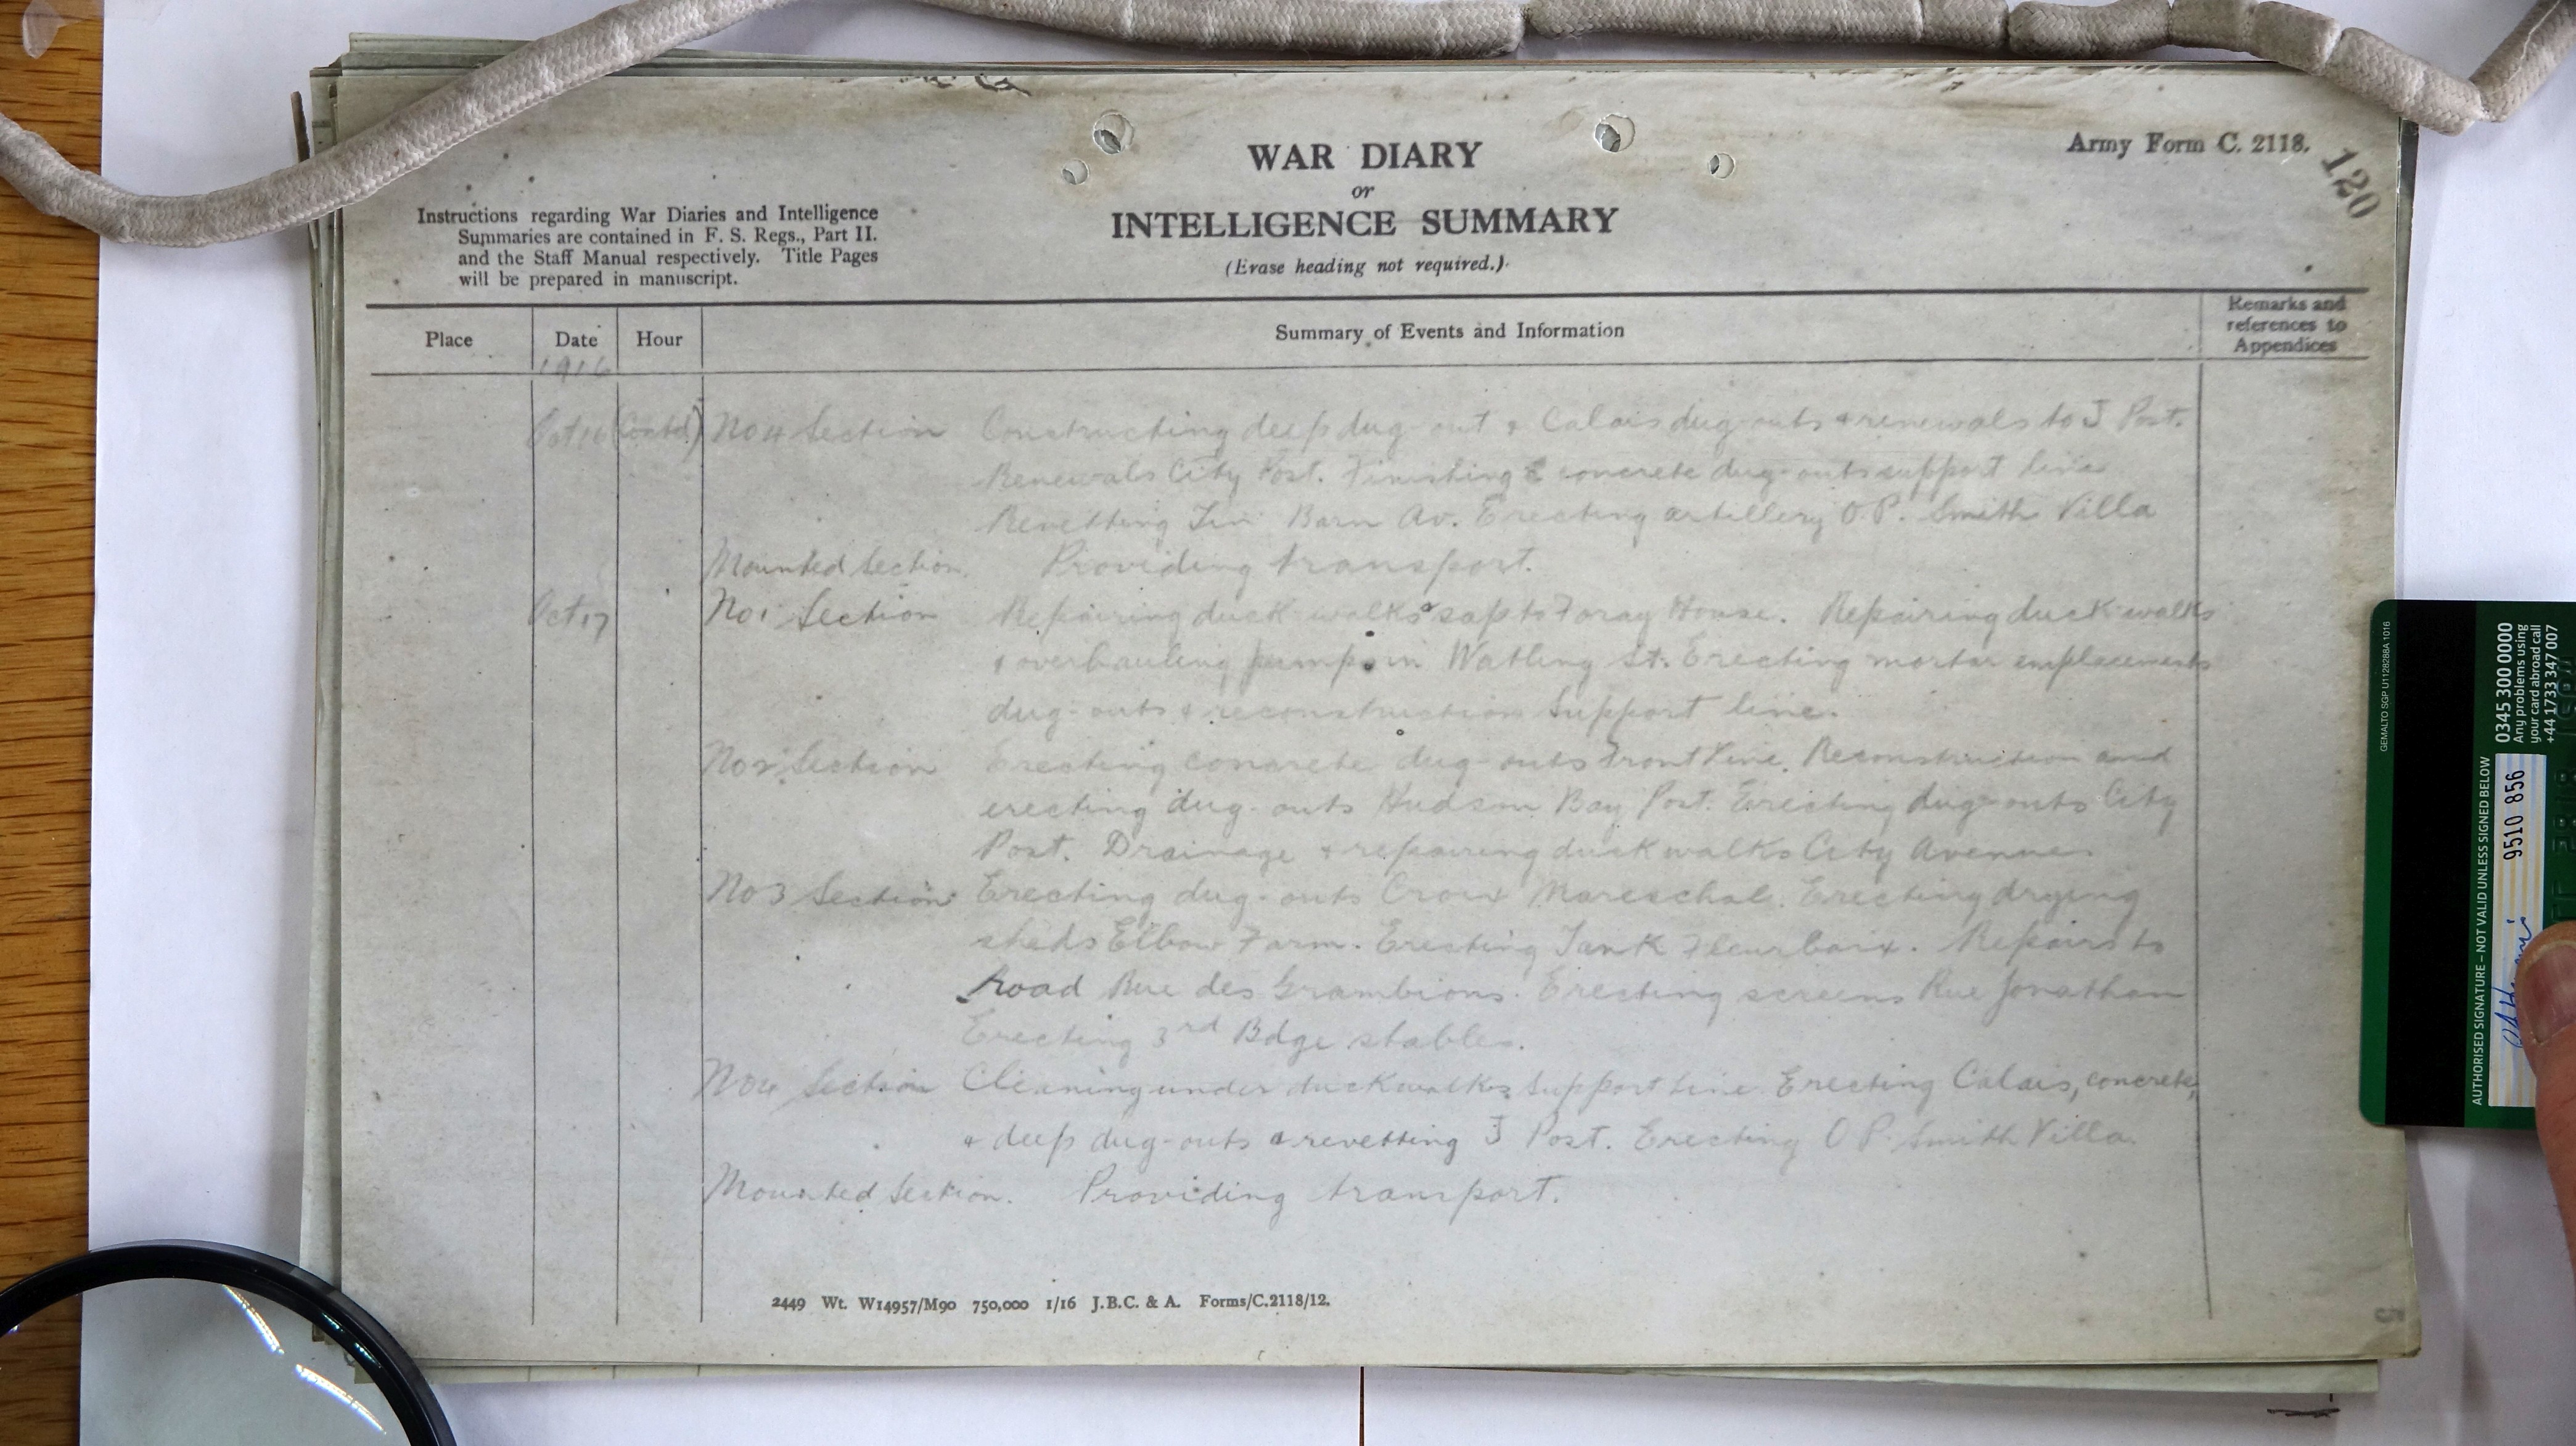 WAR DIARY
or
INTELLIGENCE SUMMARY
(Erase heading not required.)
Army Form C. 2118.
120
Instructions regarding War Diaries and Intelligence
Summaries are contained in F. S. Regs., Part II.
and the Staff Manual respectively. Title Pages
will be prepared in manuscript.
Place Date Hour Summary of Events and Information Remarks and
references to
Appendices
1916
Oct 16 (Contd) No 4 Section Constructing deep dug-out & Calais dug-outs & renewals to J Post.
Renewals City Post. Finishing concrete dug-outs support line
Revetting Tin Barn Av. Erecting artillery O.P. Smith Villa
Mounted Section. Providing transport.
Oct 17 No 1 Section Repairing duck walks & sap to Foray House. Repairing duck-walks
& overhauling pumps in Watling St. Erecting mortar emplacements
dug-outs & reconstruction Support line.
No 2 Section Erecting concrete dug-outs front line. Reconstruction and
erecting dug-outs Hudson Bay Post. Erecting dug-outs City
Post. Drainage & repairing duck walks City Avenue
No 3 Section Erecting dug-outs Croix Mareschal. Erecting drying
sheds Elbow Farm. Erecting Tank Fleurbaix. Repairs to
road Rue des Grambions. Erecting screens Rue Jonathan
Erecting 3rd Bdge stables.
No 4 Section Cleaning under duckwalks Support line Erecting Calais, concrete,
& deep dug-outs & revetting J Post. Erecting O P Smith Villa.
Mounted Section. Providing transport.
2449 Wt. W14957/M90 750,000 1/16 J.B.C. & A. Forms/C.2118/12.
GEMALTO SGP U1128288A 1016
0345 300 0000
Any problems using
your card abroad call
+44 1733 347 007
AUTHORISED SIGNATURE – NOT VALID UNLESS SIGNED BELOW
9510 856